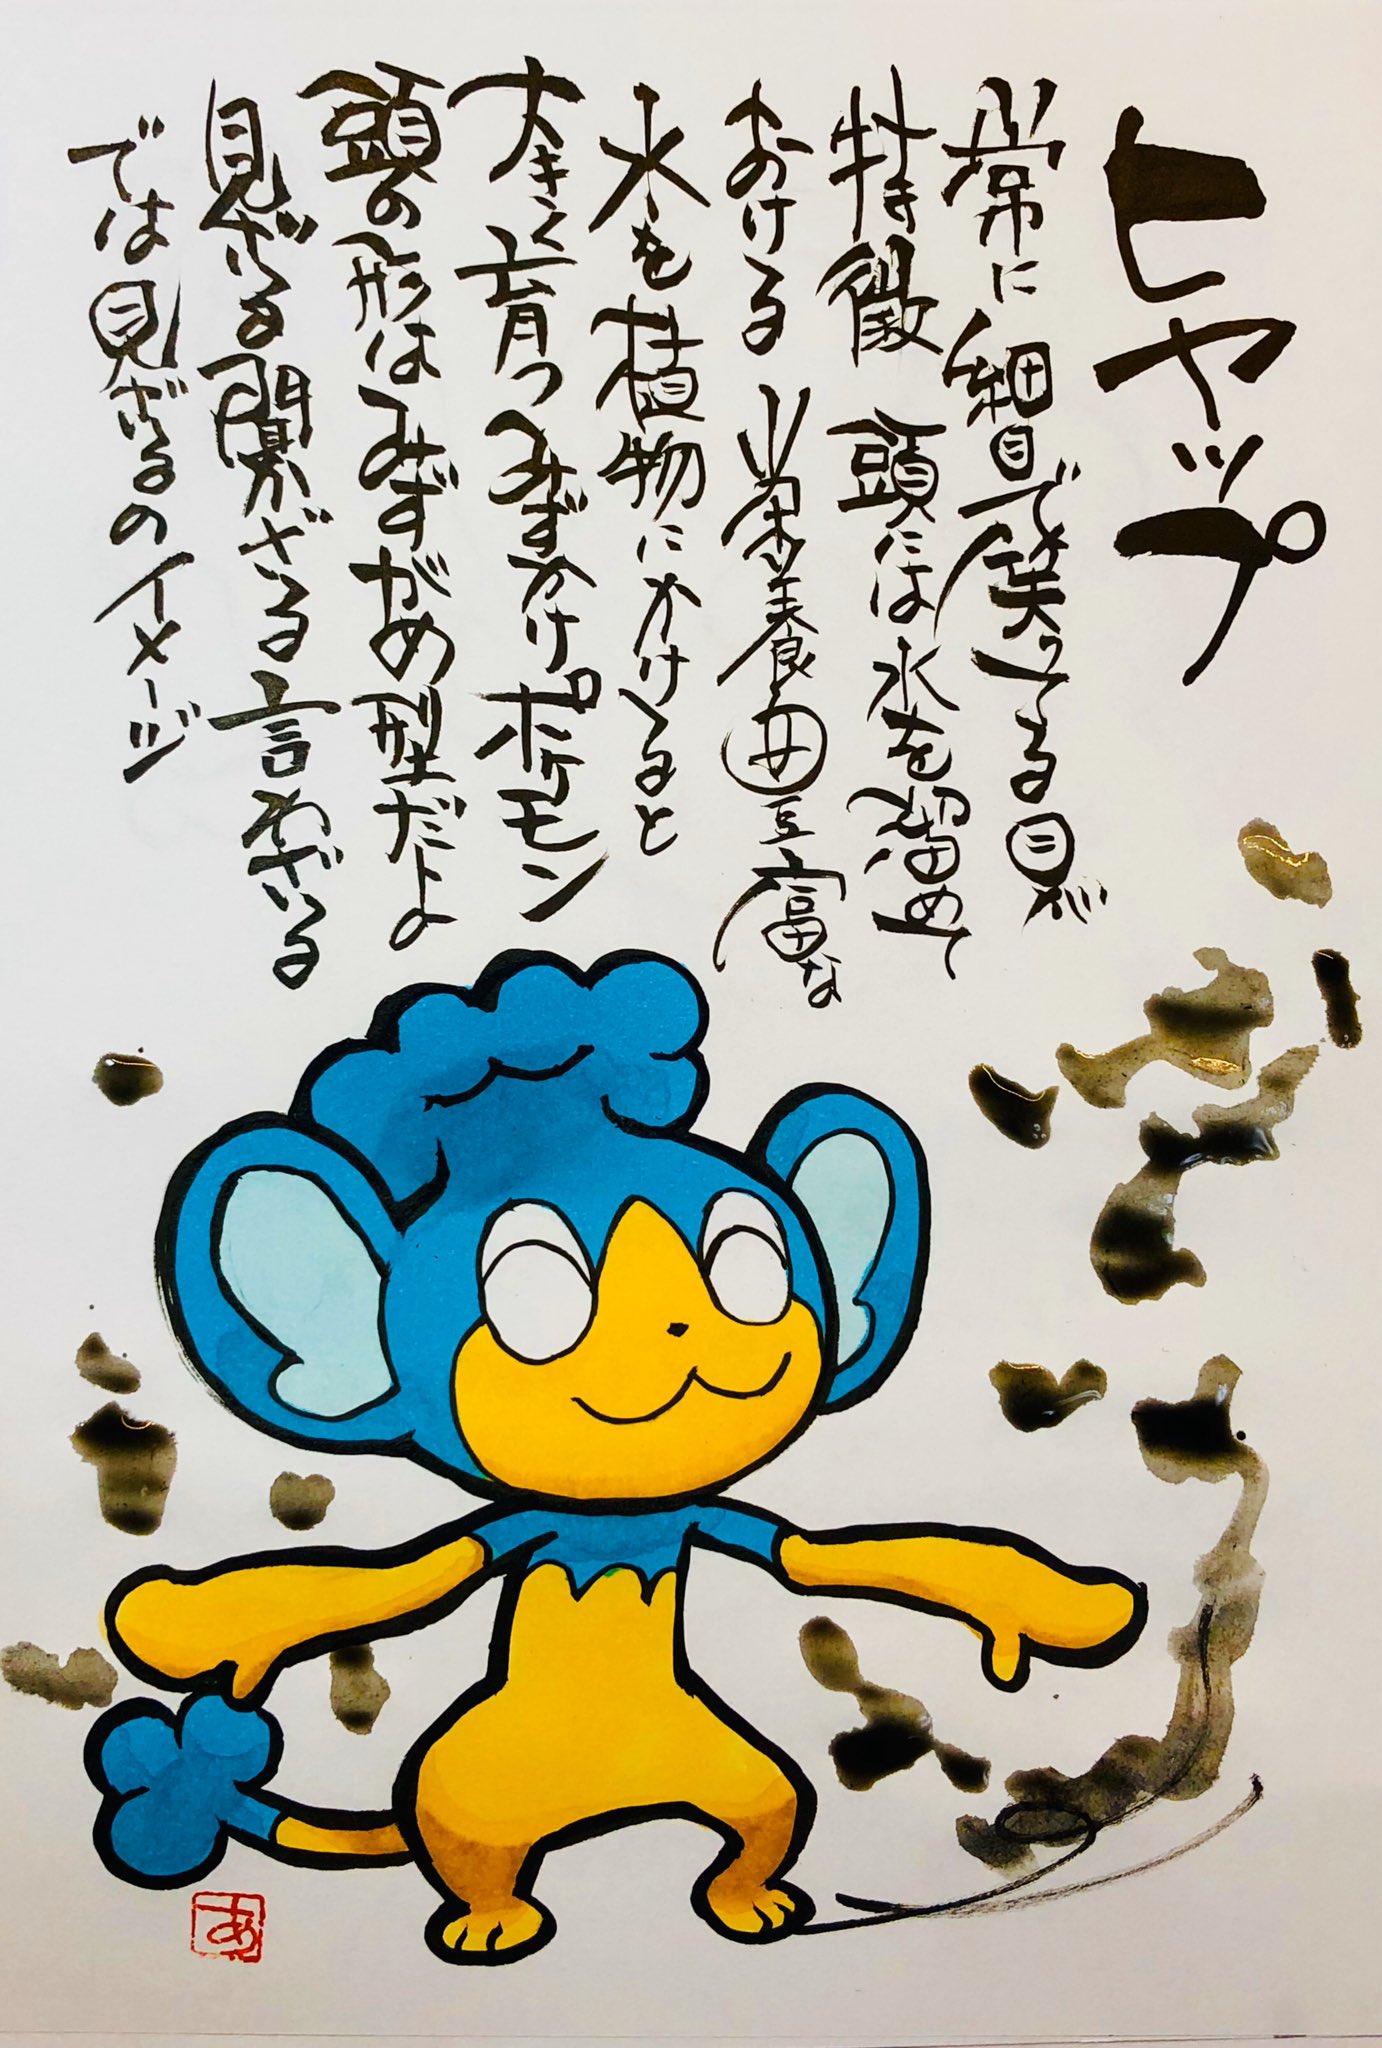 ヒヤップ
常に細目で笑ってる目が
特徴 頭には水を溜めて
おける 栄養豊富な
水を植物にかけると
大きく育つみずかけポケモン
頭の形はみずがめ型だよ
見ざる聞かざる言わざる
では見ざるのイメージ
あ